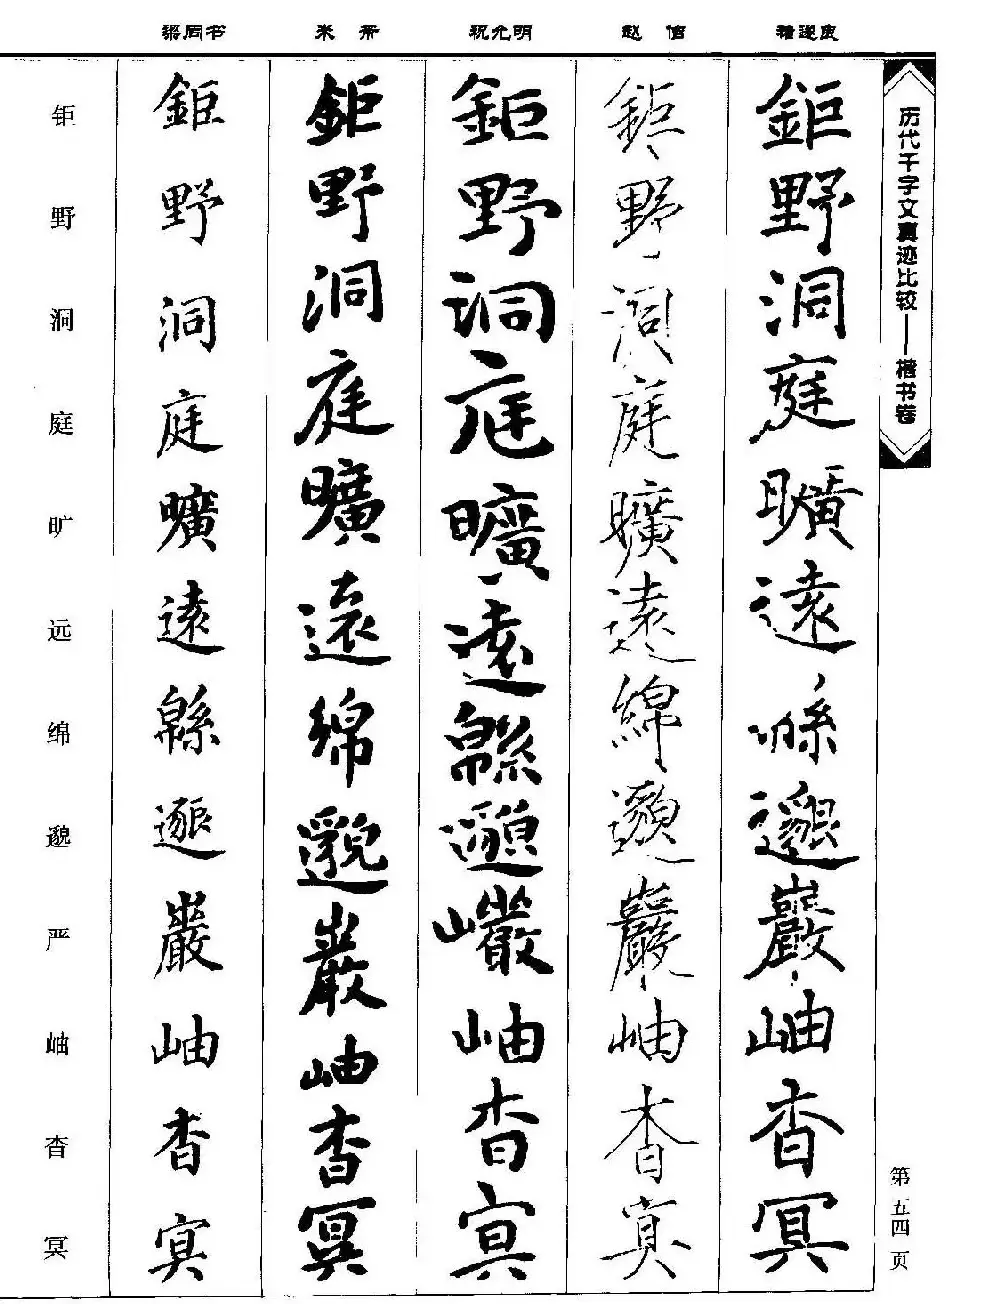 梁同书 米芾 祝允明 赵佶 褚遂良
历代千字文真迹比较——楷书卷
鉅野洞庭曠遠緜邈巖岫杳冥
鉅野洞庭曠遠綿邈巖岫杳冥
鉅野洞庭曠遠緜邈巖岫杳冥
鉅野洞庭曠遠綿邈巖岫杳冥
鉅野洞庭曠遠緜邈巖岫杳冥
钜野洞庭旷远绵邈严岫杳冥
第五四页